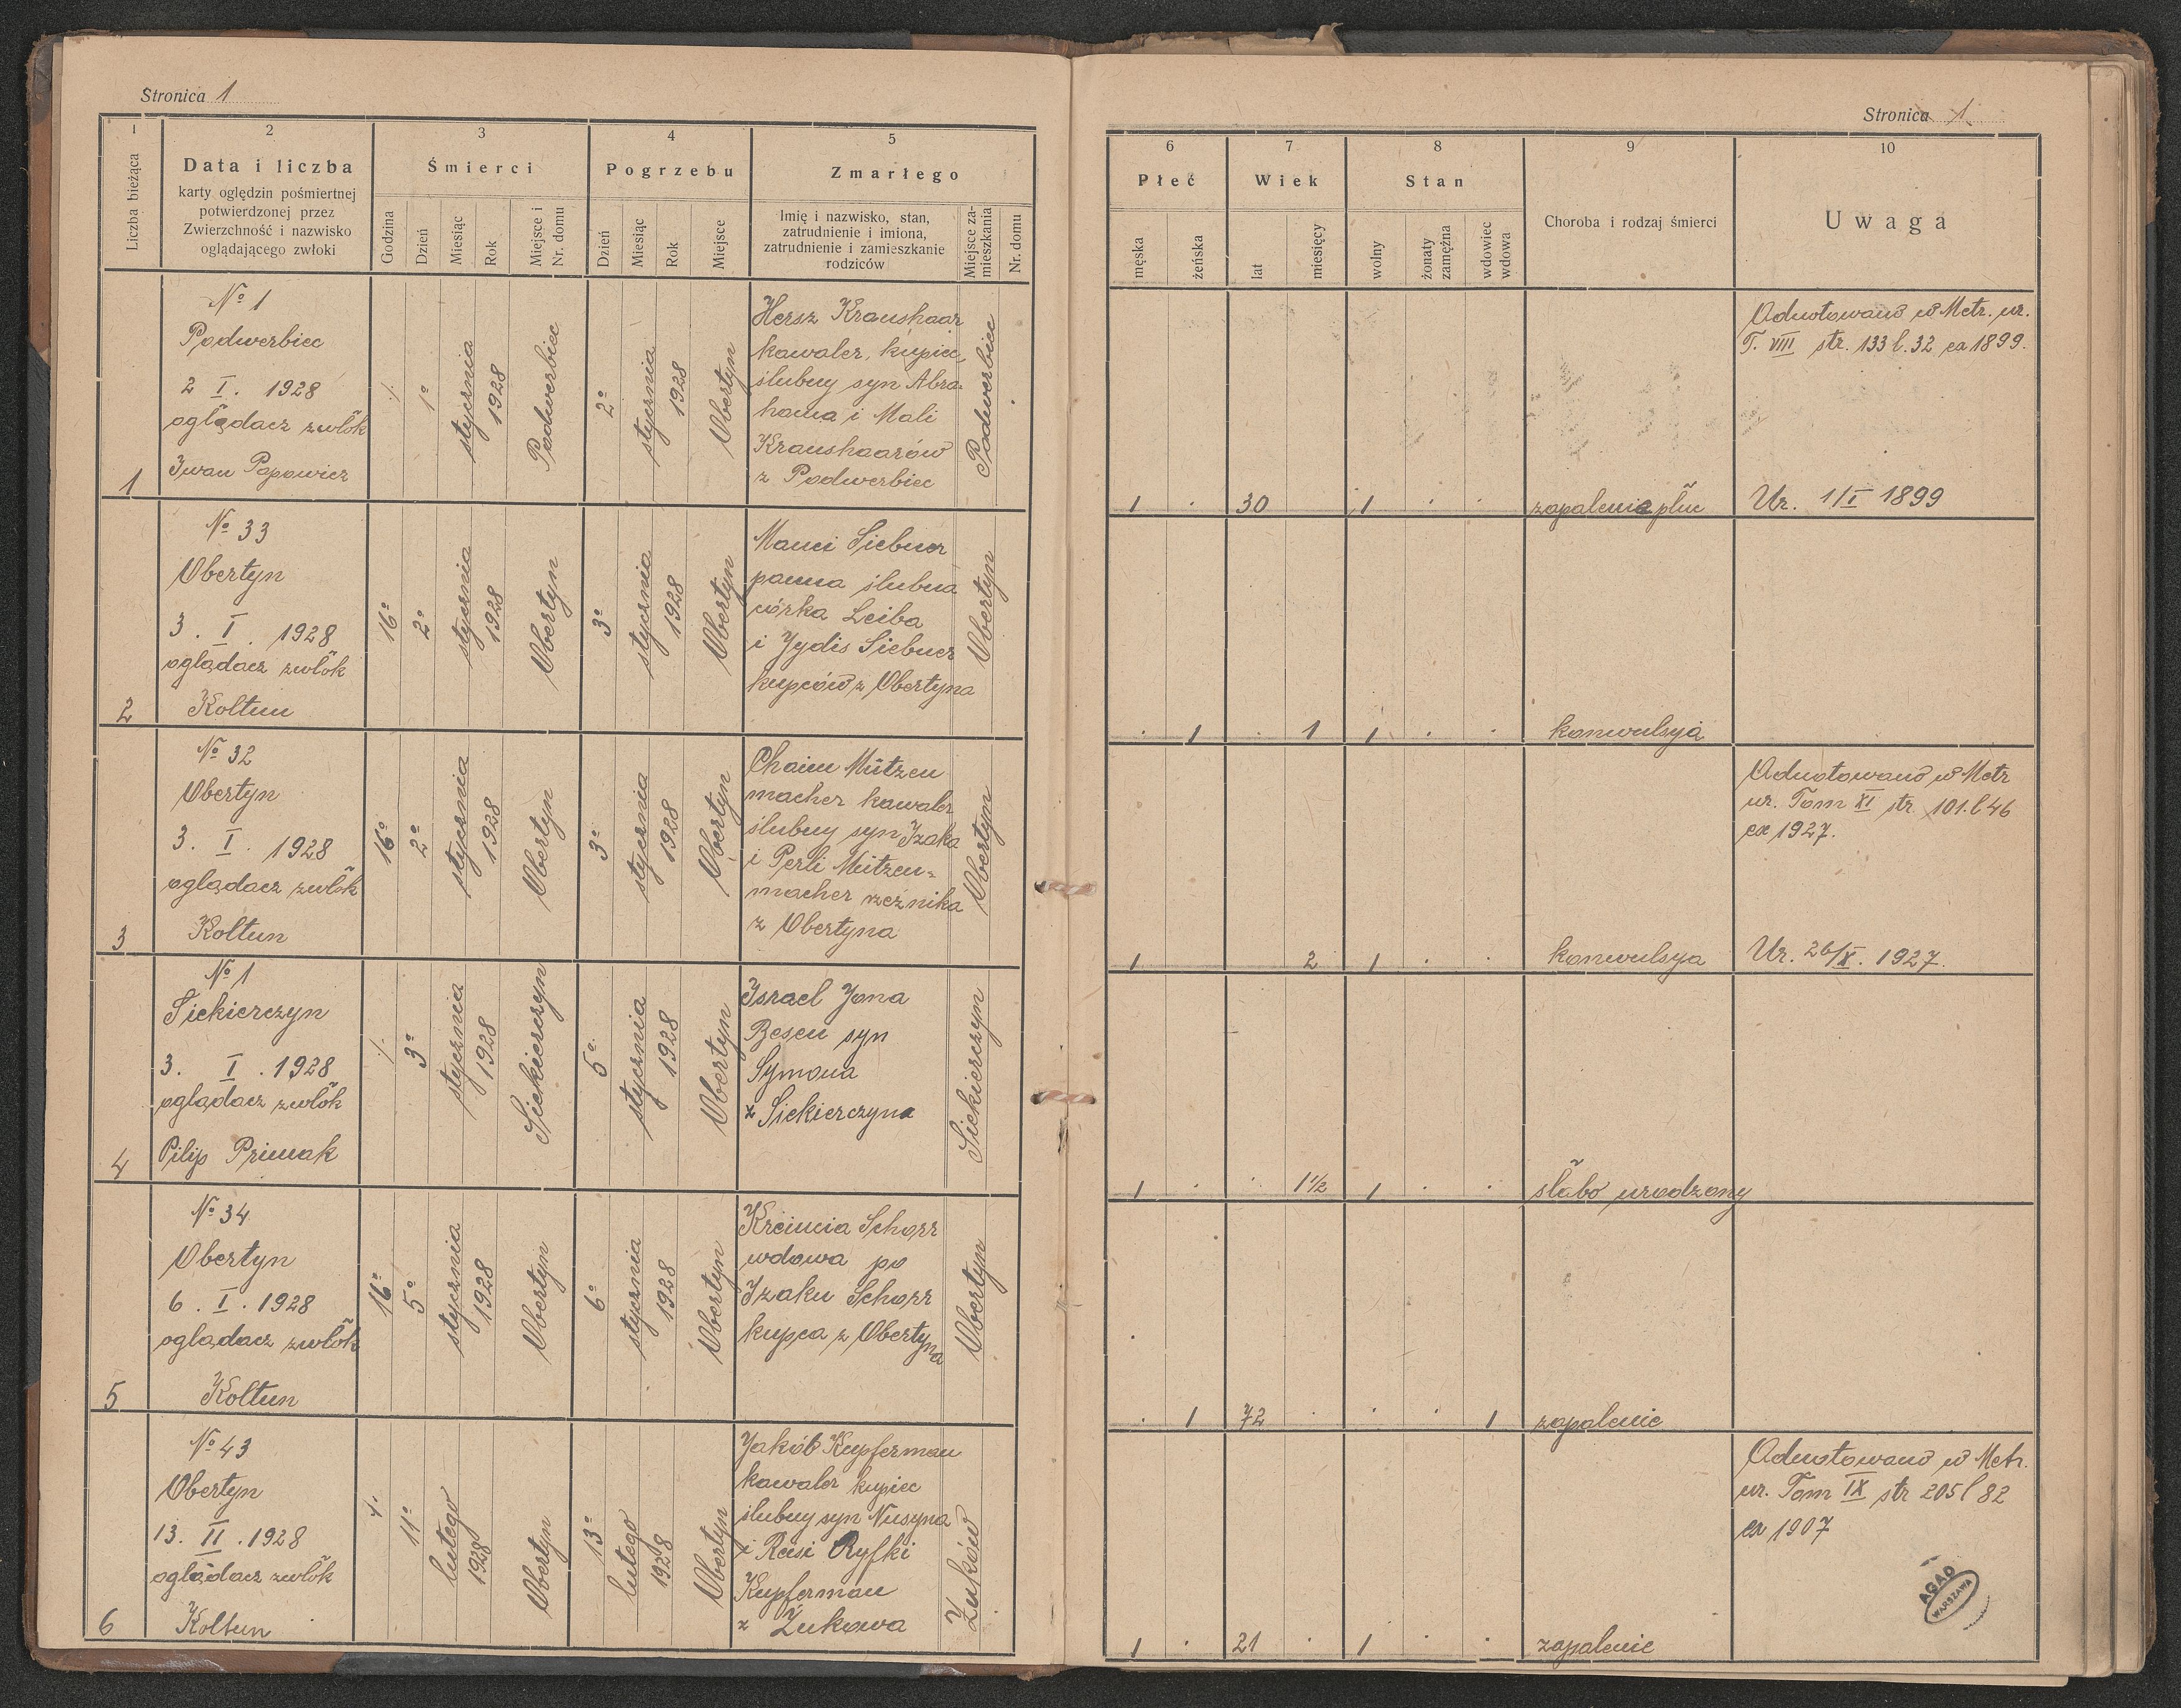 Stronica 1
1
2
3
4
5
Liczba bieżąca
Data i liczba
karty oględzin pośmiertnej
potwierdzonej przez
Zwierzchność i nazwisko
oglądającego zwłoki
Śmierci
Godzina
Dzień
Miesiąc
Rok
Miejsce i
Nr. domu
Pogrzebu
Dzień
Miesiąc
Rok
Miejsce
Zmarłego
Imię i nazwisko, stan,
zatrudnienie i imiona,
zatrudnienie i zamieszkanie
rodziców
Miejsce za-
mieszkania
Nr. domu
1
No 1
Podwerbiec
2 I. 1928
oglądacz zwłok
Iwan Popowicz
1°
stycznia
1928
Podwerbiec
2°
stycznia
1928
Obertyn
Hersz Kraushaar
kawaler, kupiec,
ślubny syn Abra-
hama i Mali
Kraushaarów
z Podwerbiec
Podwerbiec
2
No 33
Obertyn
3. I. 1928
oglądacz zwłok
Koltun
16°
2°
stycznia
1928
Obertyn
3°
stycznia
1928
Obertyn
Manci Siebner
panna ślubna
córka Leiba
i Jydis Siebner
kupców z Obertyna
Obertyn
3
No 32
Obertyn
3. I. 1928
oglądacz zwłok
Koltun
16°
2°
stycznia
1928
Obertyn
3°
stycznia
1928
Obertyn
Chaim Mützen
macher kawaler
ślubny syn Izaka
i Perli Mützen=
macher rzeźnika
z Obertyna
Obertyn
4
No 1
Siekierczyn
3. I. 1928
oglądacz zwłok
Pilip Primak
3°
stycznia
1928
Siekierczyn
5°
stycznia
1928
Obertyn
Israel Jona
Besen syn
Symona
z Siekierczyna
Siekierczyn
5
No 34
Obertyn
6. I. 1928
oglądacz zwłok
Koltun
16°
5°
stycznia
1928
Obertyn
6°
stycznia
1928
Obertyn
Kreincia Schorr
wdowa po
Izaku Schorr
kupca z Obertyna
Obertyn
6
No 43
Obertyn
13. II. 1928
oglądacz zwłok
Koltun
11°
lutego
1928
Obertyn
13°
lutego
1928
Obertyn
Jakób Kupferman
kawaler kupiec
ślubny syn Nusyna
i Reisi Ryfki
Kupferman
z Żukowa
Żuków
Stronica 1
6
7
8
9
10
Płeć
męska
żeńska
Wiek
lat
miesięcy
Stan
wolny
żonaty
zamężna
wdowiec
wdowa
Choroba i rodzaj śmierci
Uwaga
Adnotowano w Metr. ur.
T. VIII str. 133 l. 32 ex 1899.
1 . 30 1 . . zapalenie płuc Ur. 1/I 1899
. 1 . 1 1 . . konwulsya
Adnotowano w Metr
ur. Tom XI str. 101. l 46
ex 1927.
1 2 1 . . konwulsya Ur. 26/X. 1927.
1 . . 1 1/2 1 . . słabo urodzony
. 1 72 . . . 1 zapalenie
Adnotowano w Metr.
ur. Tom IX str 205 l 82
ex 1907
1 . 21 . 1 . . zapalenie
AGAD
WARSZAWA